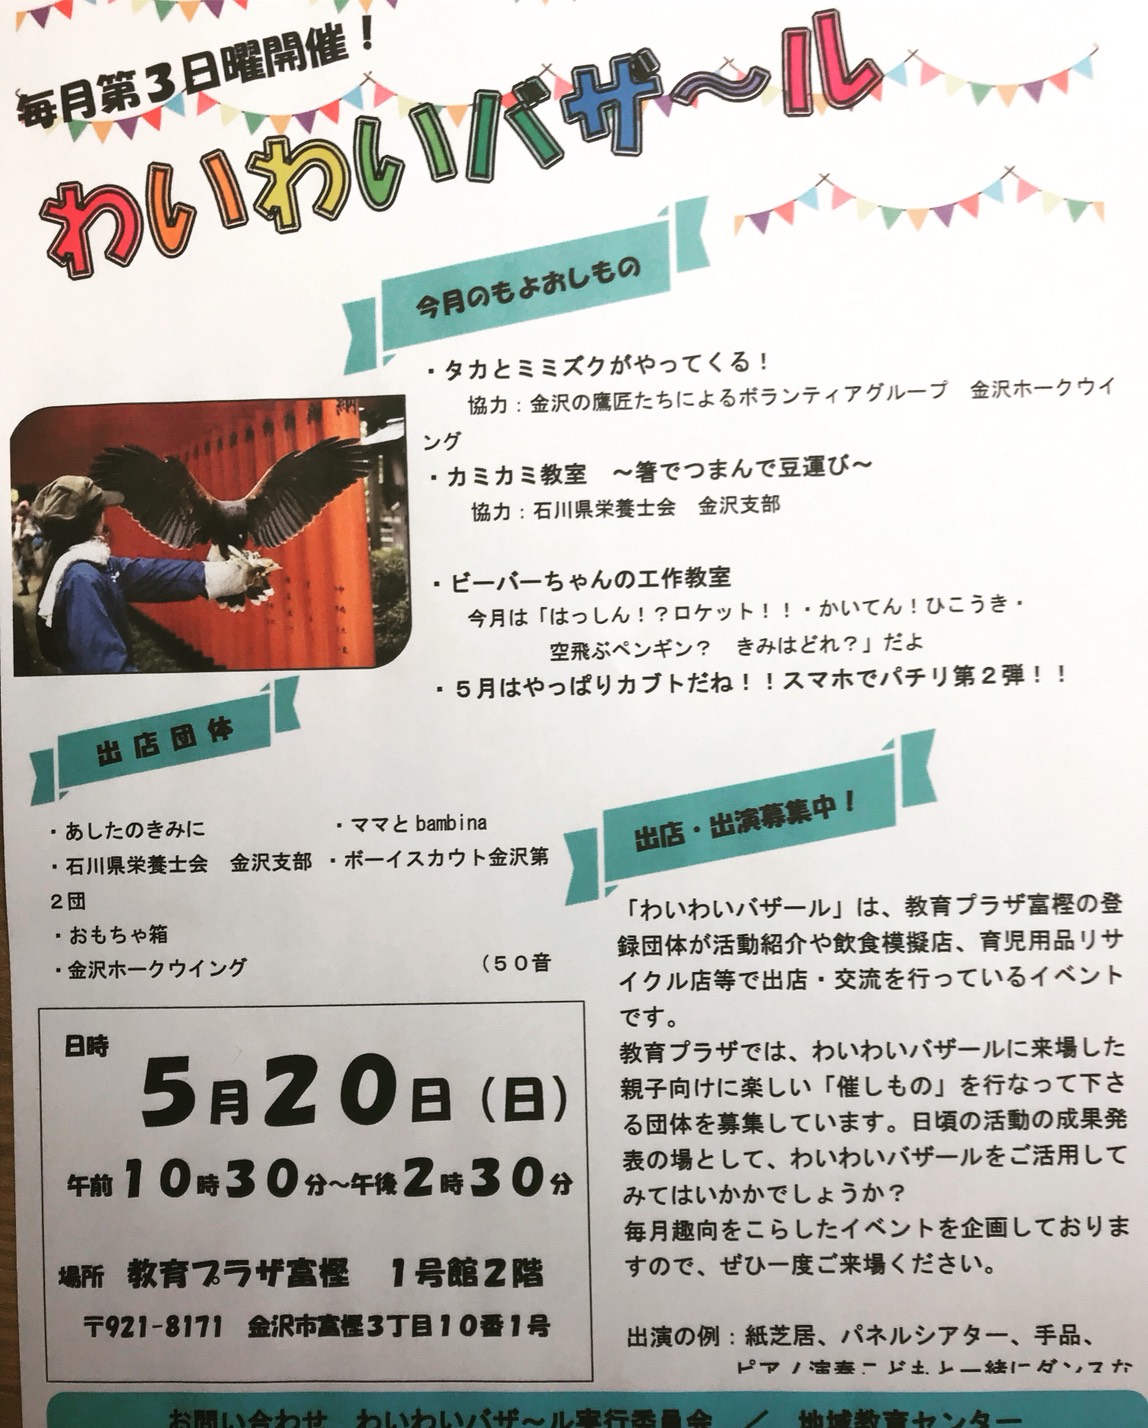 毎月第３日曜開催！
わいわいバザ～ル
今月のもよおしもの
・タカとミミズクがやってくる！
協力：金沢の鷹匠たちによるボランティアグループ　金沢ホークウイ
ング
・カミカミ教室　～箸でつまんで豆運び～
協力：石川県栄養士会　金沢支部
・ビーバーちゃんの工作教室
今月は「はっしん！？ロケット！！・かいてん！ひこうき・
空飛ぶペンギン？　きみはどれ？」だよ
・５月はやっぱりカブトだね！！スマホでパチリ第２弾！！
出店団体
・あしたのきみに　・ママと bambina
・石川県栄養士会　金沢支部　・ボーイスカウト金沢第
２団
・おもちゃ箱
・金沢ホークウイング　（５０音
日時
５月２０日（日）
午前１０時３０分～午後２時３０分
場所　教育プラザ富樫　１号館２階
〒921-8171　金沢市富樫３丁目１０番１号
出店・出演募集中！
「わいわいバザール」は、教育プラザ富樫の登
録団体が活動紹介や飲食模擬店、育児用品リサ
イクル店等で出店・交流を行っているイベント
です。
教育プラザでは、わいわいバザールに来場した
親子向けに楽しい「催しもの」を行なって下さ
る団体を募集しています。日頃の活動の成果発
表の場として、わいわいバザールをご活用して
みてはいかかでしょうか？
毎月趣向をこらしたイベントを企画しておりま
すので、ぜひ一度ご来場ください。
出演の例：紙芝居、パネルシアター、手品、
ピアノ演奏こどもと一緒にダンスな
お問い合わせ　わいわいバザ～ル実行委員会　／　地域教育センター